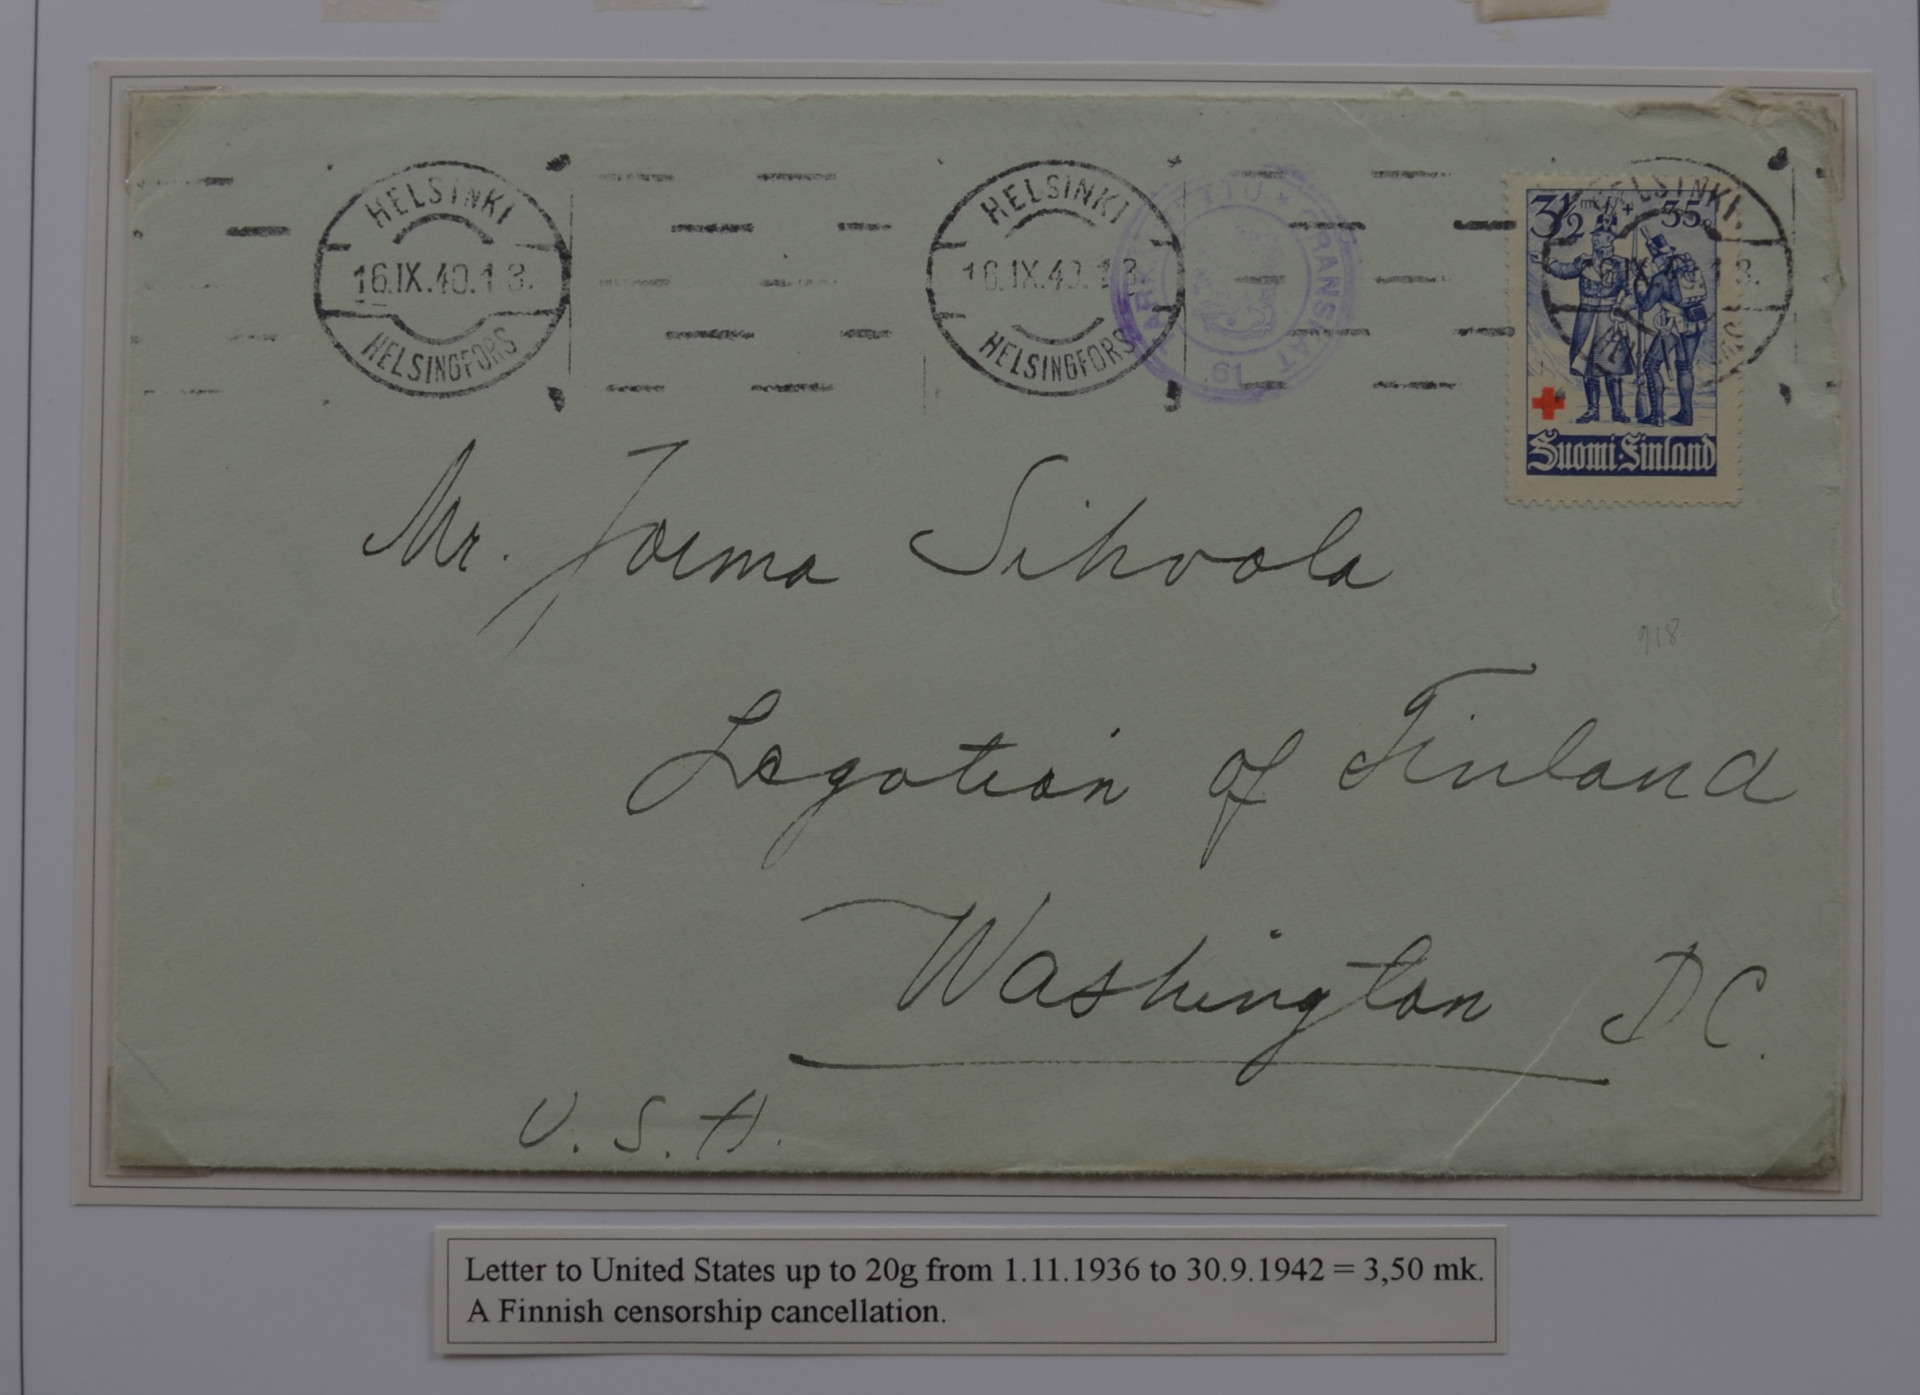 HELSINKI
16.IX.40.13.
HELSINGFORS
HELSINKI
16.IX.40.13.
HELSINGFORS
GRANSKAT
61
HELSINKI
3½ mk + 35 p
Suomi-Finland
Mr. Jorma Sihvola
918
Legation of Finland
Washington D.C.
U.S.A.
Letter to United States up to 20g from 1.11.1936 to 30.9.1942 = 3,50 mk.
A Finnish censorship cancellation.